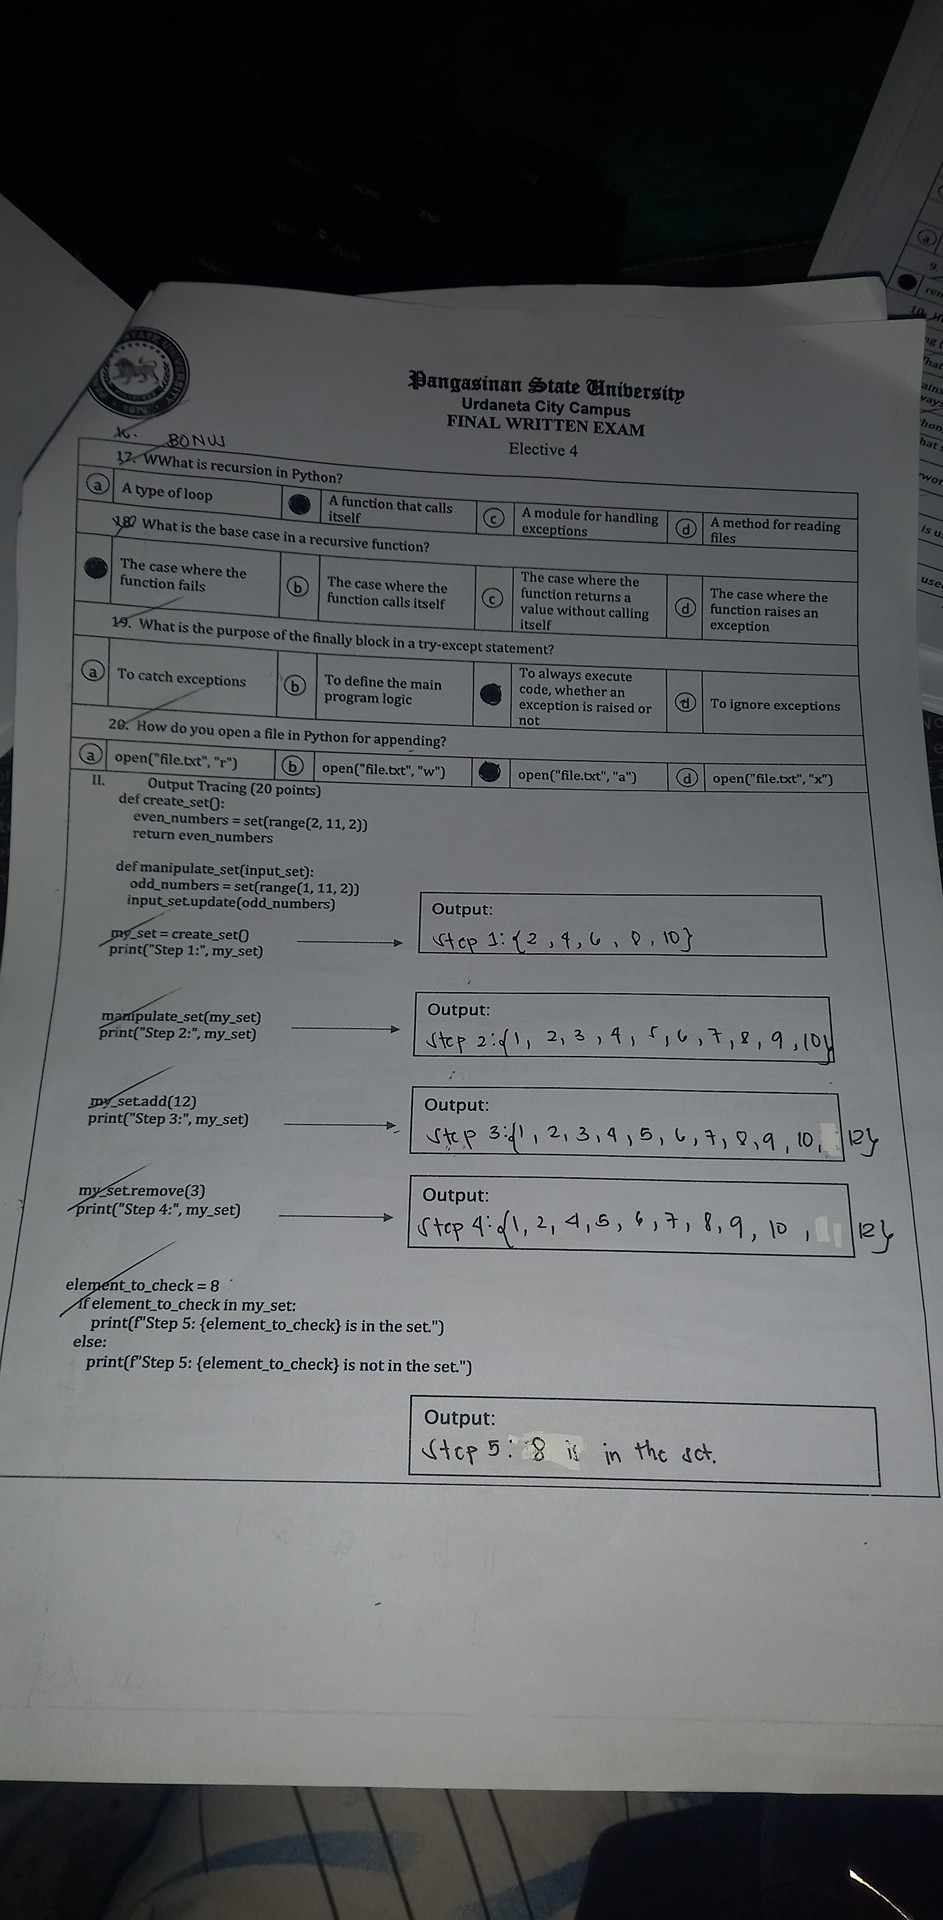 Pangasinan State University
Urdaneta City Campus
FINAL WRITTEN EXAM
Elective 4
16. BONUS
17. WWhat is recursion in Python?
a A type of loop
A function that calls itself
c A module for handling exceptions
d A method for reading files
18. What is the base case in a recursive function?
The case where the function fails
b The case where the function calls itself
c The case where the function returns a value without calling itself
d The case where the function raises an exception
19. What is the purpose of the finally block in a try-except statement?
a To catch exceptions
b To define the main program logic
To always execute code, whether an exception is raised or not
d To ignore exceptions
20. How do you open a file in Python for appending?
a open("file.txt", "r")
b open("file.txt", "w")
open("file.txt", "a")
d open("file.txt", "x")
II. Output Tracing (20 points)
def create_set():
even_numbers = set(range(2, 11, 2))
return even_numbers
def manipulate_set(input_set):
odd_numbers = set(range(1, 11, 2))
input_set.update(odd_numbers)
my_set = create_set()
print("Step 1:", my_set)
Output:
Step 1: {2, 4, 6, 8, 10}
manipulate_set(my_set)
print("Step 2:", my_set)
Output:
Step 2: {1, 2, 3, 4, 5, 6, 7, 8, 9, 10}
my_set.add(12)
print("Step 3:", my_set)
Output:
Step 3: {1, 2, 3, 4, 5, 6, 7, 8, 9, 10, 12}
my_set.remove(3)
print("Step 4:", my_set)
Output:
Step 4: {1, 2, 4, 5, 6, 7, 8, 9, 10, 12}
element_to_check = 8
if element_to_check in my_set:
print(f"Step 5: {element_to_check} is in the set.")
else:
print(f"Step 5: {element_to_check} is not in the set.")
Output:
Step 5: 8 is in the set.